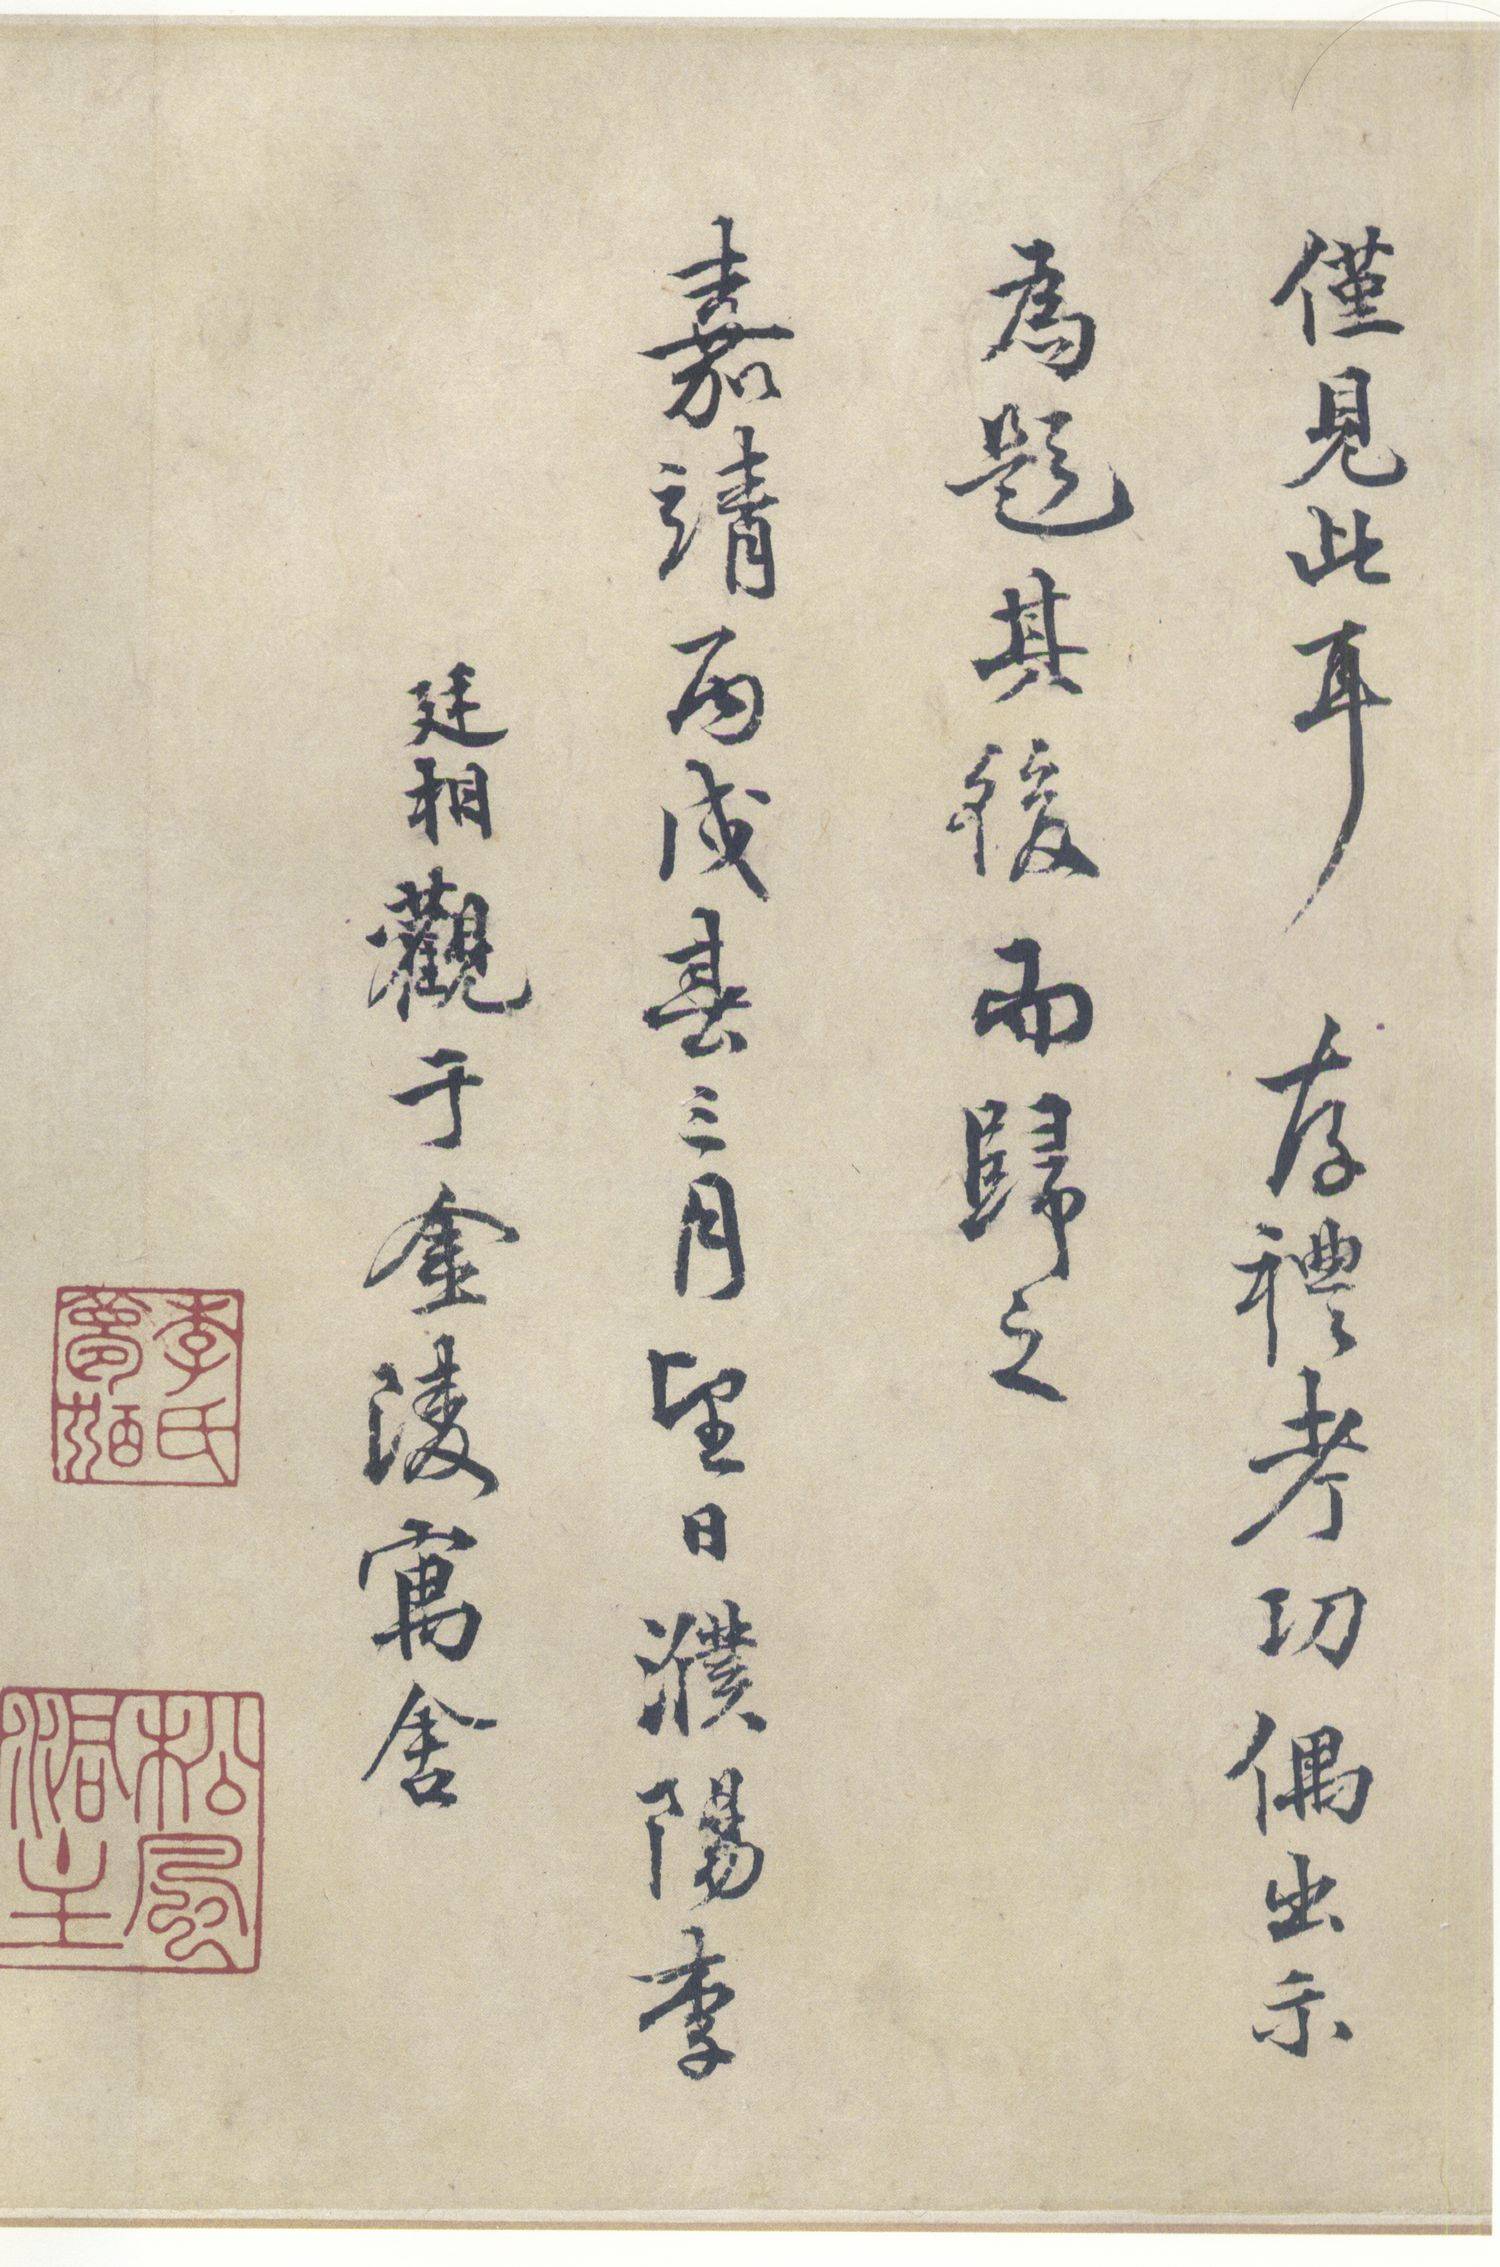 僅見此耳 存禮考功偶出示
為題其後而歸之
嘉靖丙戌春三月望日濮陽李
廷相觀于金陵寓舍
李氏
松風
洞主